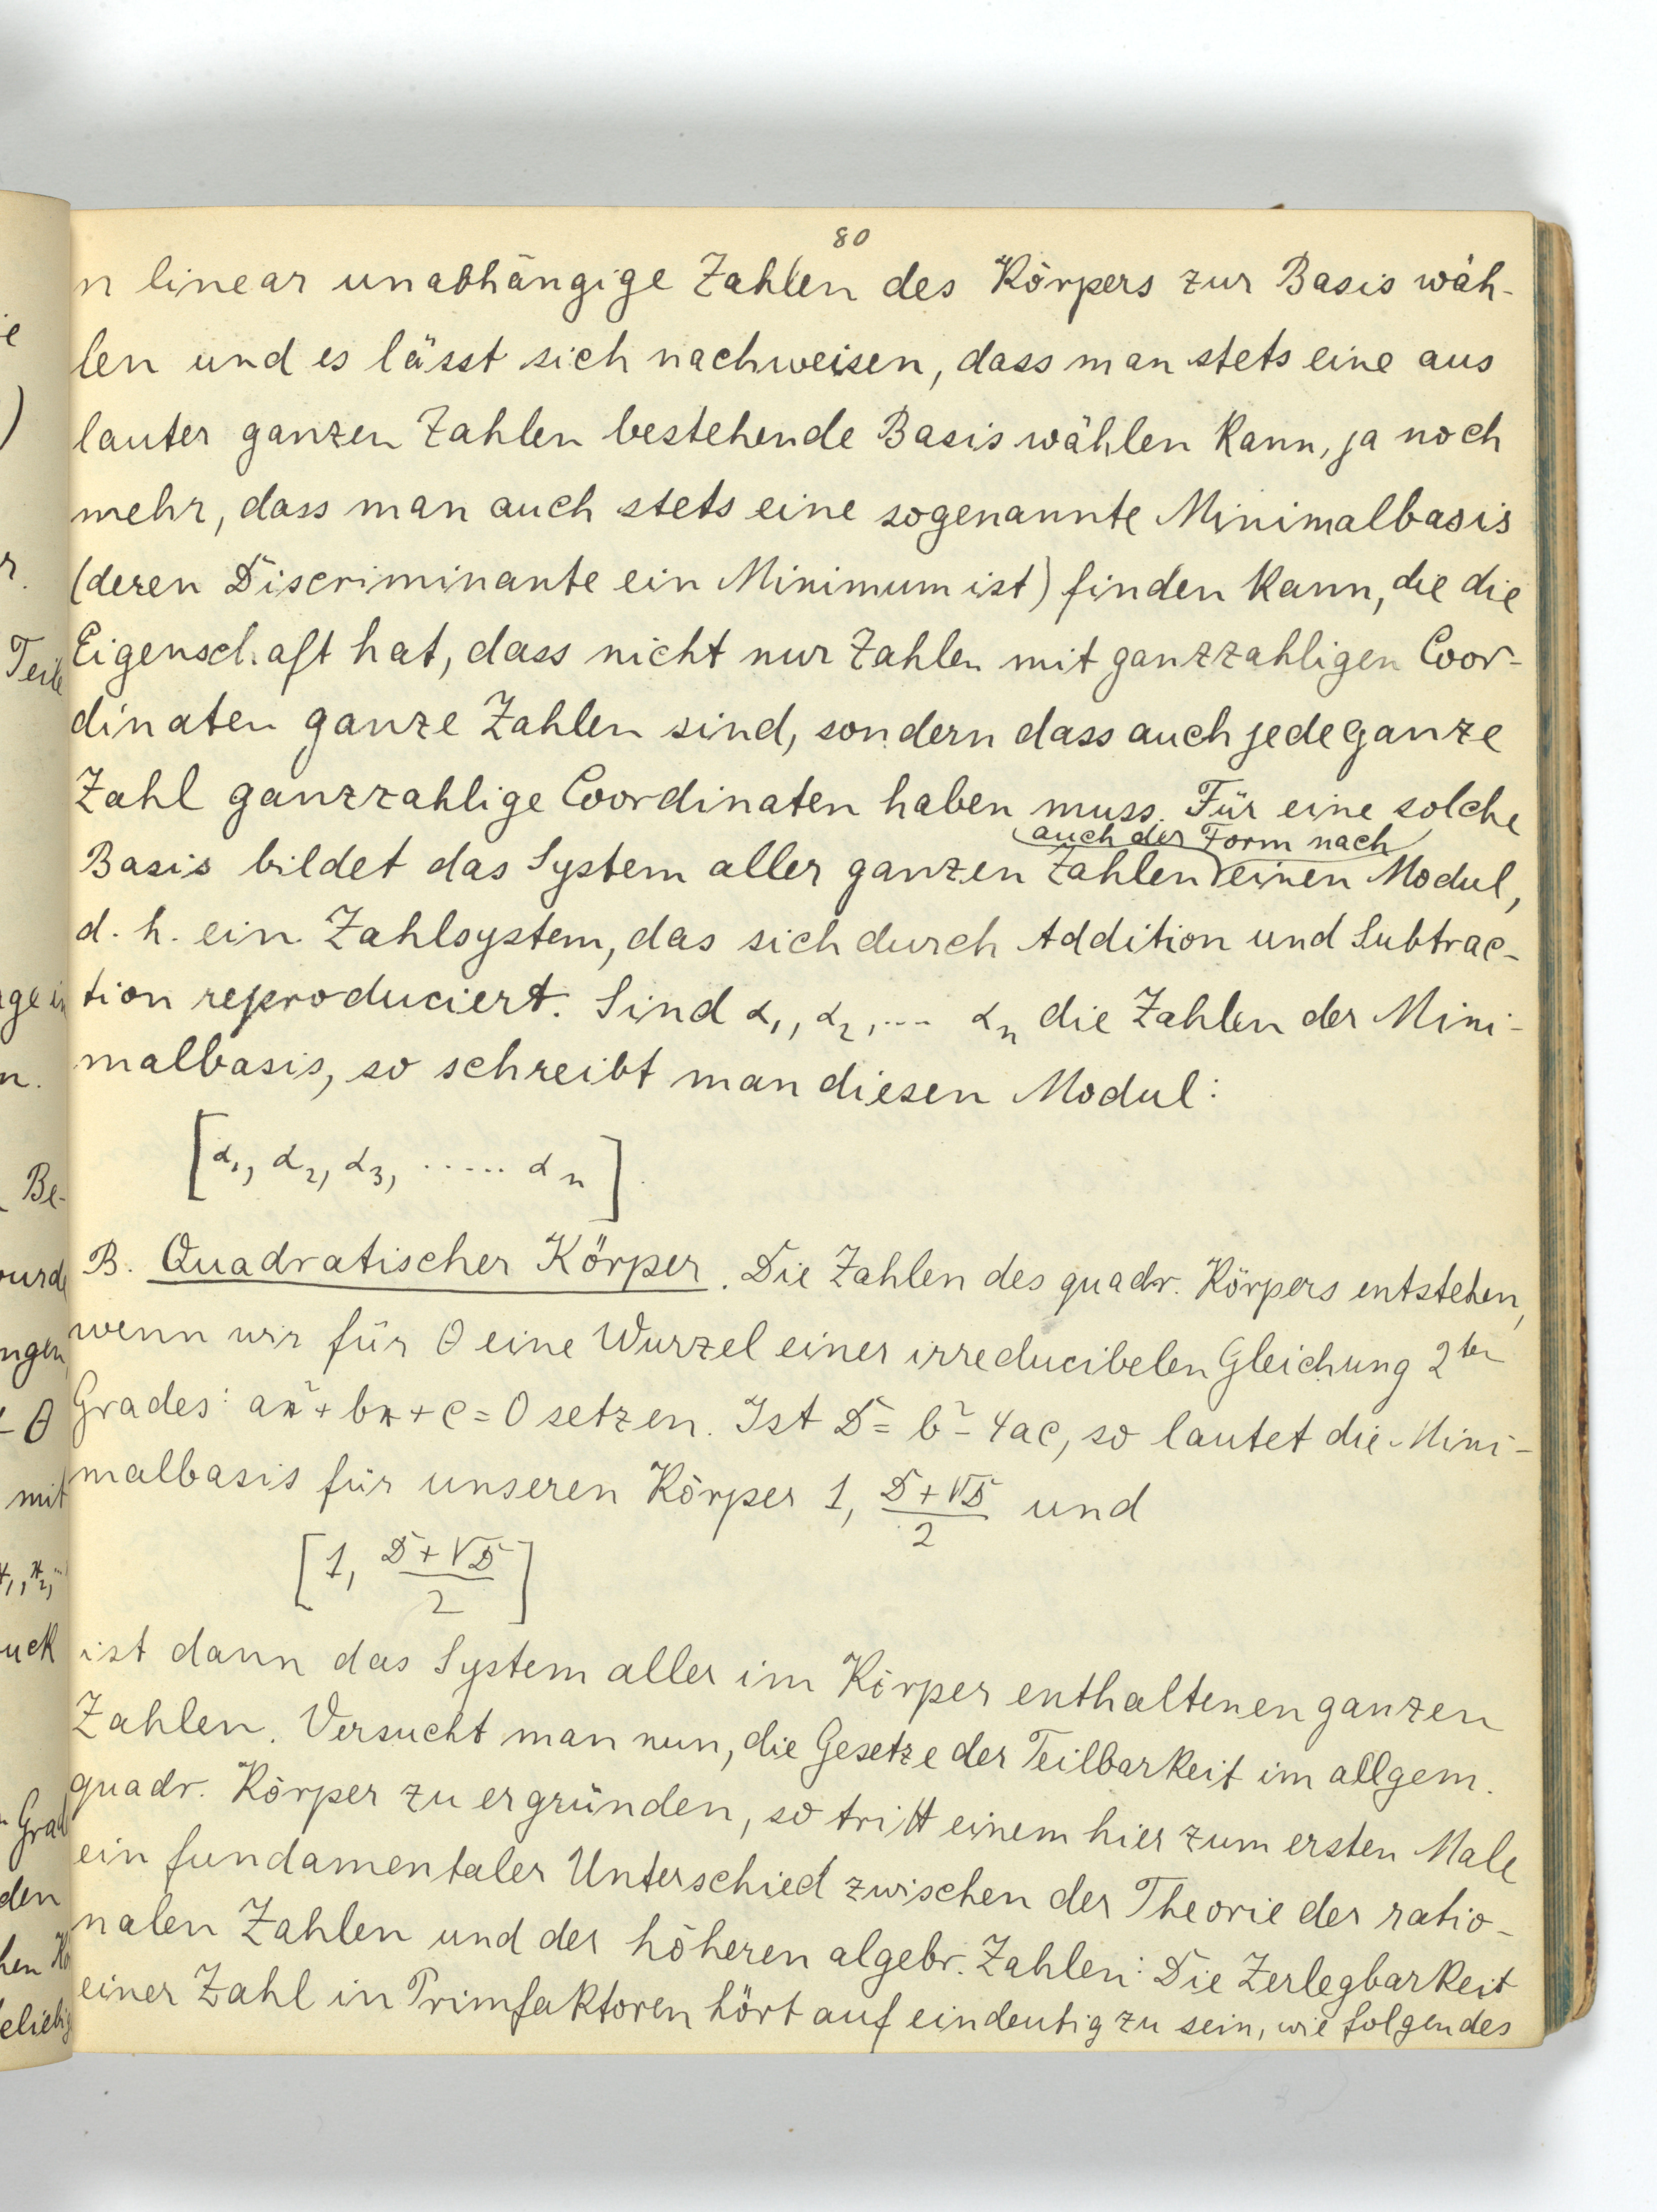 80
n linear unabhängige Zahlen des Körpers zur Basis wäh-
len und es lässt sich nachweisen, dass man stets eine aus
lauter ganzen Zahlen bestehende Basis wählen kann, ja noch
mehr, dass man auch stets eine sogenannte Minimalbasis
(deren Discriminante ein Minimum ist) finden kann, die die
Eigenschaft hat, dass nicht nur Zahlen mit ganzzahligen Coor-
dinaten ganze Zahlen sind, sondern dass auch jede ganze
Zahl ganzzahlige Coordinaten haben muss. Für eine solche
auch der Form nach
Basis bildet das System aller ganzen Zahlen einen Modul,
d. h. ein Zahlsystem, das sich durch Addition und Subtrac-
tion reproduciert. Sind α₁, α₂, .... αₙ die Zahlen der Mini-
malbasis, so schreibt man diesen Modul:
[α₁, α₂, α₃, ..... αₙ].
B. Quadratischer Körper. Die Zahlen des quadr. Körpers entstehen,
wenn wir für θ eine Wurzel einer irreducibelen Gleichung 2ten
Grades: ax² + bx + c = 0 setzen. Ist D = b² - 4ac, so lautet die Mini-
malbasis für unseren Körper 1, (D+√D)/2 und
[1, (D+√D)/2]
ist dann das System aller im Körper enthaltenen ganzen
Zahlen. Versucht man nun, die Gesetze der Teilbarkeit im allgem.
quadr. Körper zu ergründen, so tritt einem hier zum ersten Male
ein fundamentaler Unterschied zwischen der Theorie der ratio-
nalen Zahlen und der höheren algebr. Zahlen: Die Zerlegbarkeit
einer Zahl in Primfaktoren hört auf eindeutig zu sein, wie folgendes